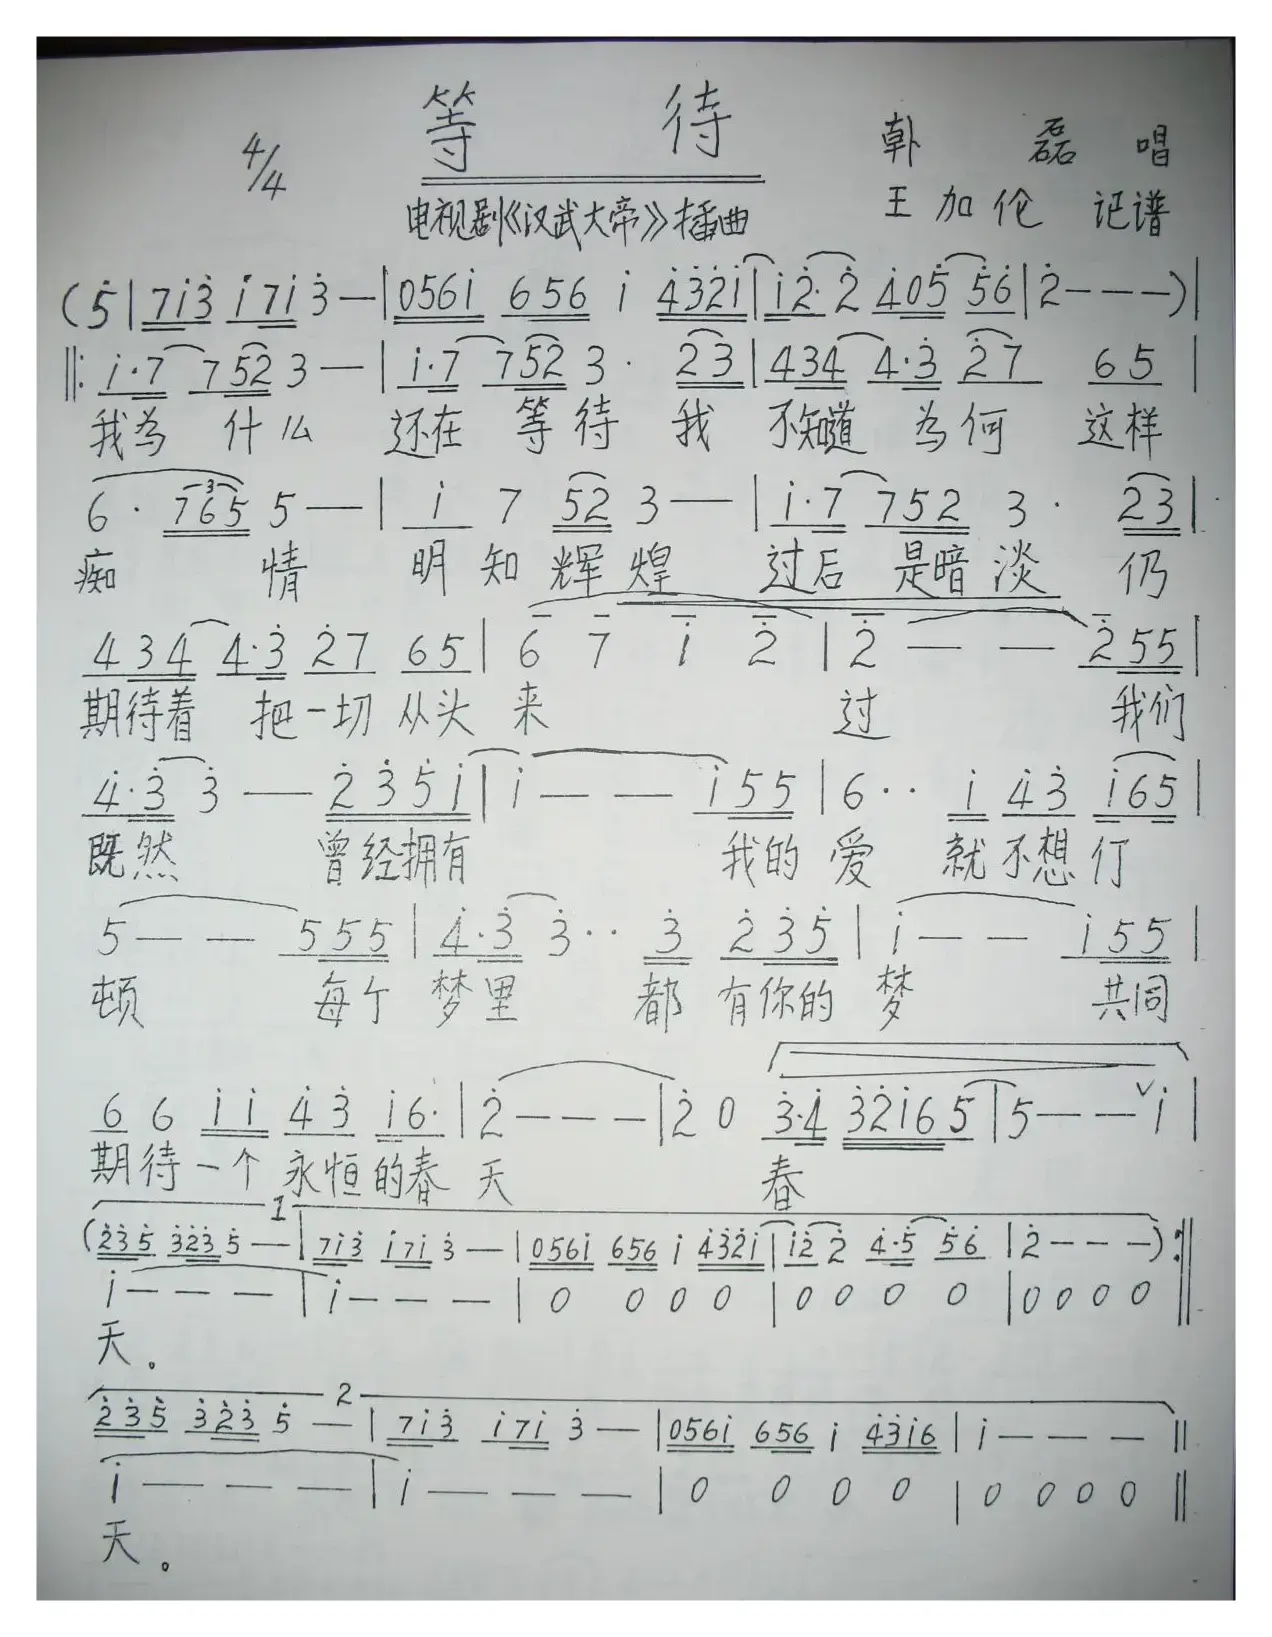 等 待
4/4
韩 磊 唱
电视剧《汉武大帝》插曲
王加伦 记谱
(5̇|7i̇3̇ i̇7i̇ 3̇—|056i̇ 656 i̇ 4̇3̇2̇i̇|i̇2̇·2̇ 4̇05̇ 5̇6̇|2̇---)|
||:i̇·7 752 3—|i̇·7 752 3· 23|434 4·3̇ 2̇7 65|
我为 什么 还在 等待 我 不知道 为何 这样
6·765 5—|i̇ 7 52 3—|i̇·7 752 3· 23|
痴 情 明知辉煌 过后 是暗淡 仍
434 4·3̇ 2̇7 65|6 7 i̇ 2̇|2̇—— 2̇55|
期待着 把一切 从头 来 过 我们
4̇·3̇ 3̇— 2̇3̇5̇i̇|i̇—— i̇55|6·· i̇ 4̇3̇ i̇65|
既然 曾经拥有 我的爱 就不想 仃
5—— 555|4̇·3̇ 3̇·· 3̇ 2̇3̇5̇|i̇—— i̇55|
顿 每个 梦里 都 有你的 梦 共同
6 6 i̇i̇ 4̇3̇ i̇6·|2̇---|2̇ 0 3̇·4̇ 3̇2̇i̇65|5---ˇi̇|
期待一个 永恒的春 天 春
1
(2̇3̇5̇ 3̇2̇3̇ 5̇—|7i̇3̇ i̇7i̇ 3̇—|056i̇ 656 i̇ 4̇3̇2̇i̇|i̇2̇ 2̇ 4̇·5̇ 5̇6̇|2̇---):||
i̇---|i̇---|0 0 0 0|0 0 0 0|0 0 0 0||
天。
2
2̇3̇5̇ 3̇2̇3̇ 5̇—|7i̇3̇ i̇7i̇ 3̇—|056i̇ 656 i̇ 4̇3̇i̇6|i̇---||
i̇---|i̇---|0 0 0 0|0 0 0 0||
天。